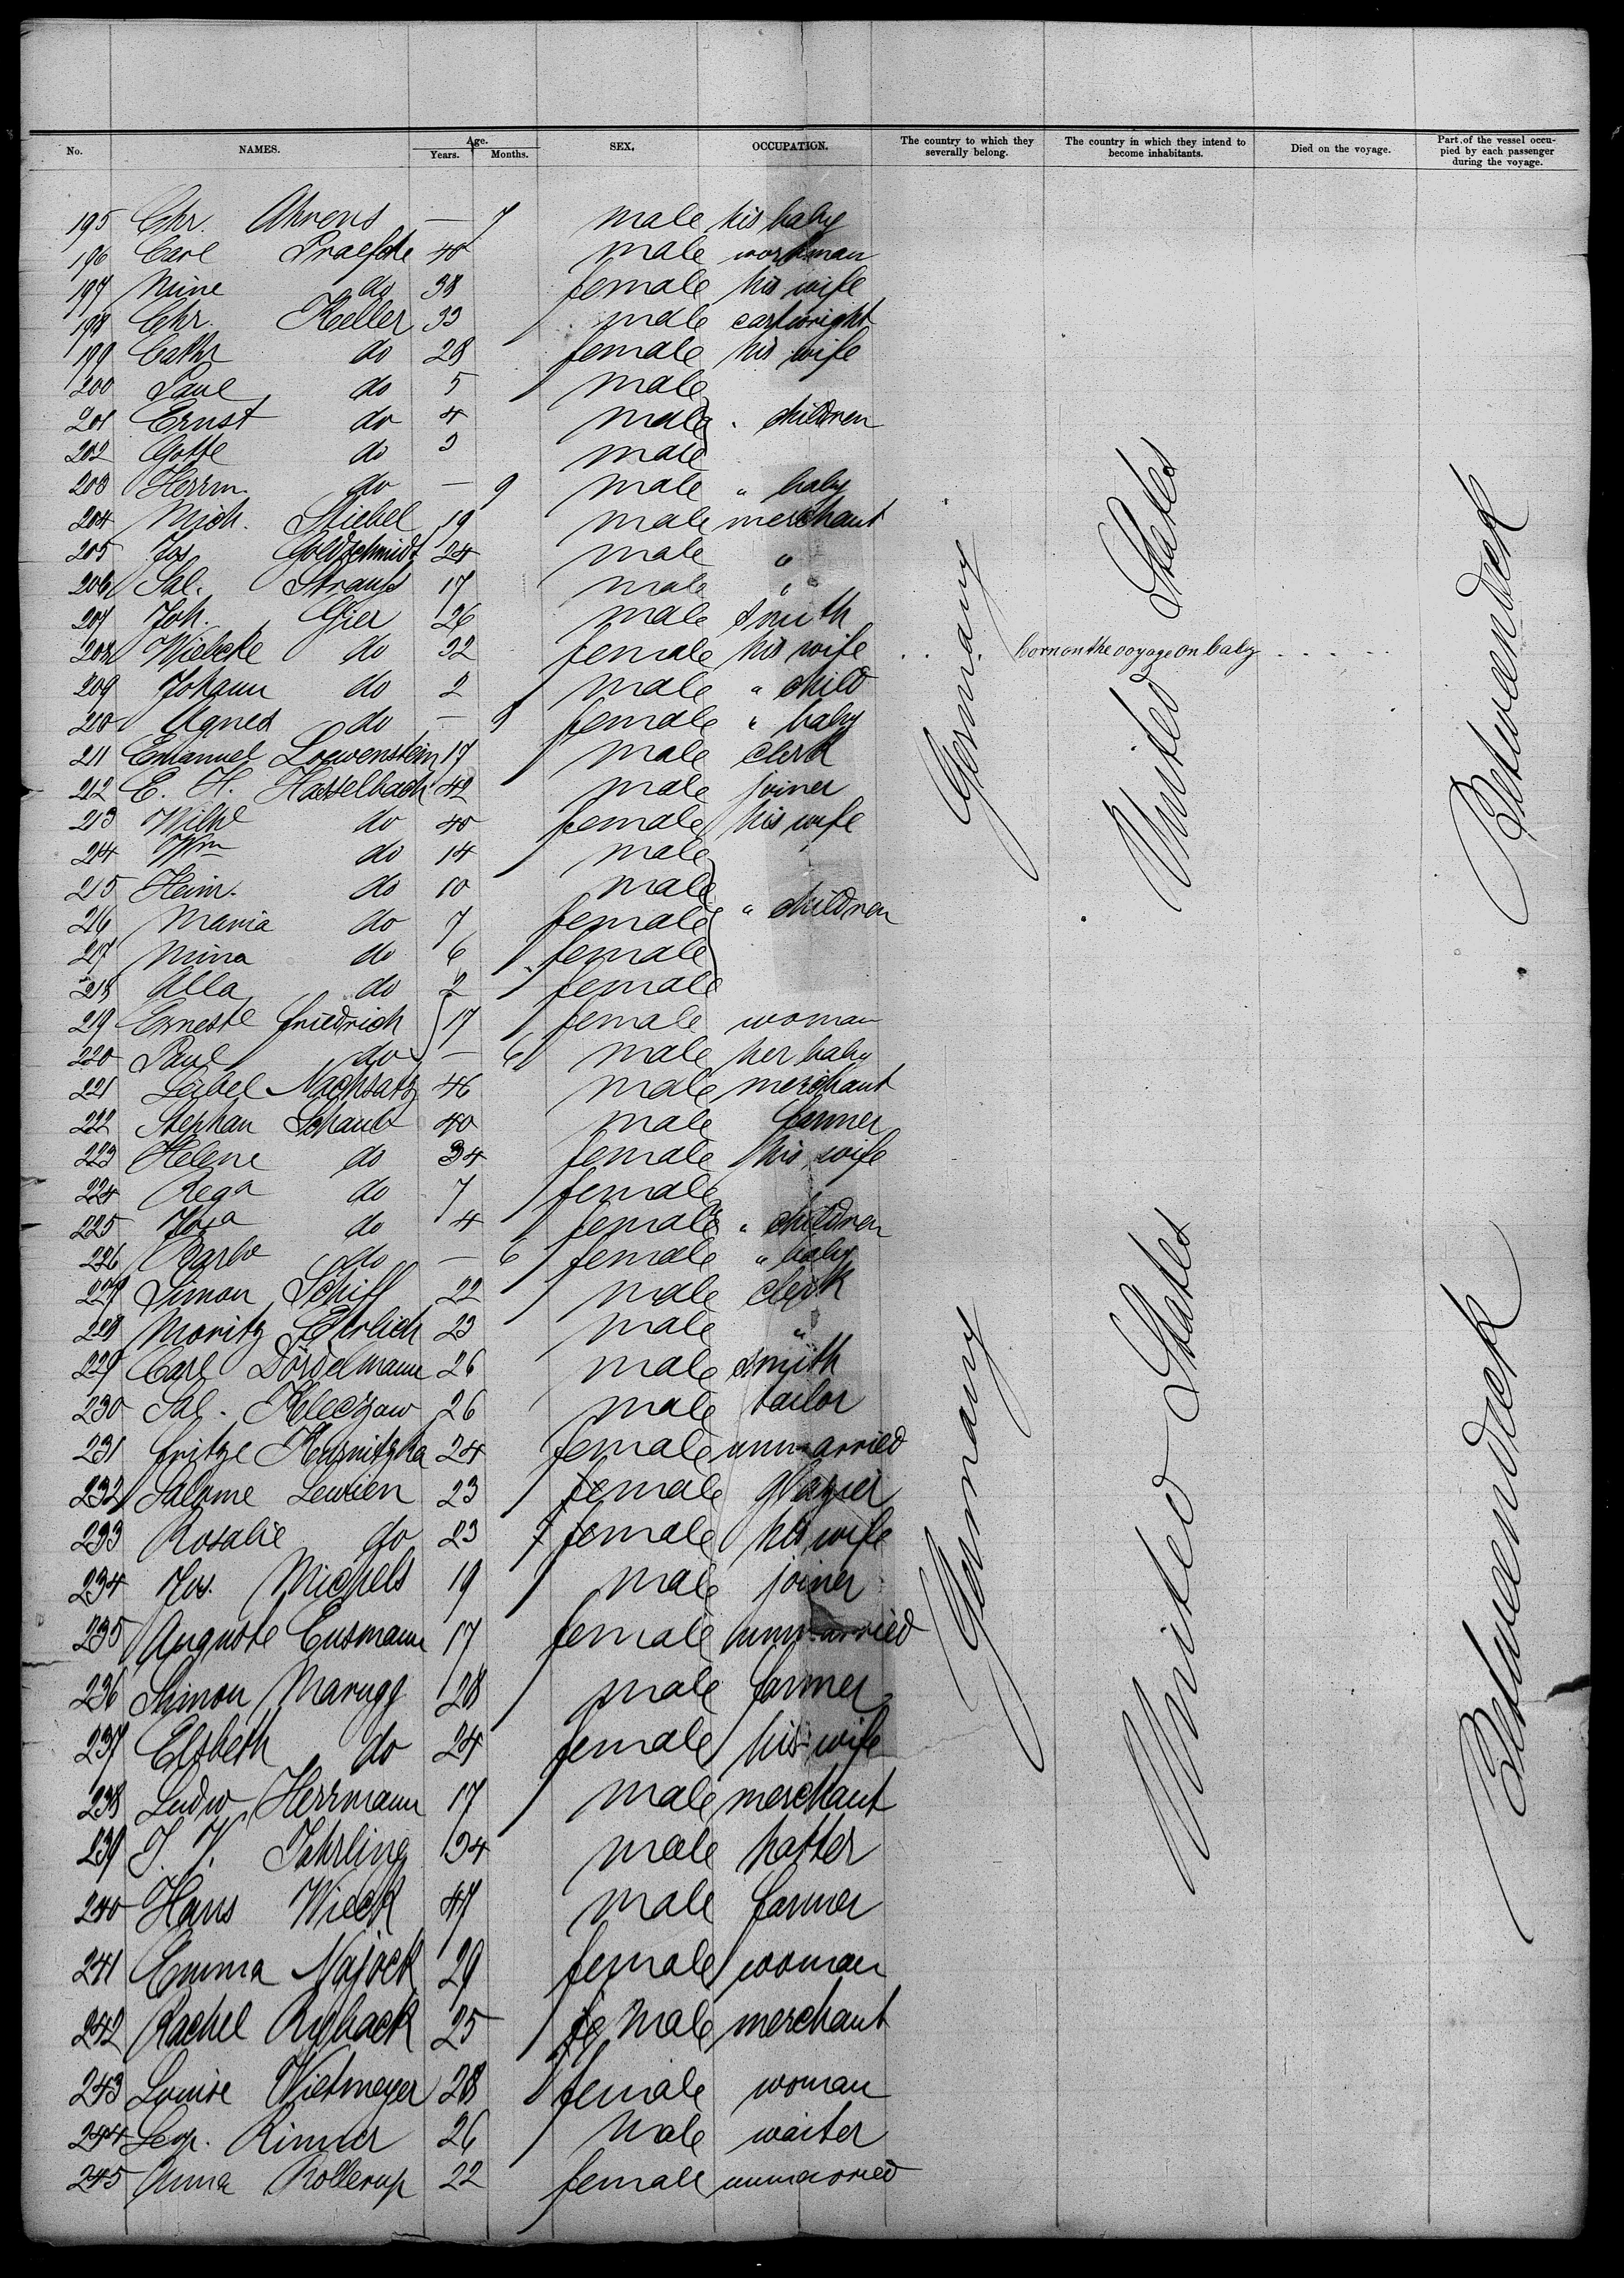 No. NAMES. Age. Years. Months. SEX. OCCUPATION. The country to which they severally belong. The country in which they intend to become inhabitants. Died on the voyage. Part of the vessel occupied by each passenger during the voyage.
195 Chr. Ahrens — 7 male his baby
196 Carl Praefcke 40 male workman
197 Mine do 38 female his wife
198 Chr. Keller 33 male cartwright
199 Cathr do 28 female his wife
200 Paul do 5 male
201 Ernst do 4 male " children
202 Gotte do 3 male
203 Herrm. do — 9 male " baby
204 Mich. Stiebel 19 male merchant
205 Jos Goldschmidt 24 male "
206 Sal. Strauss 17 male "
207 Joh. Gier 26 male smith
208 Wiebcke do 32 female his wife . . . born on the voyage on baby - - - - -
209 Johann do 2 male " child
210 Agnes do — 9 female " baby
211 Emanuel Loewenstein 17 male clerk
212 E. H. Hasselbach 42 male joiner
213 Wilhe do 40 female his wife
214 Wm do 14 male
215 Heinr. do 10 male
216 Maria do 7 female " children
217 Mina do 6 female
218 Alla do 2 female
219 Erneste Friedrich 17 female woman
220 Paul do — 6 male her baby
221 Leibel Nachsatz 46 male merchant
222 Stephan Schaub 40 male farmer
223 Helene do 34 female his wife
224 Rega do 7 female
225 do 4 female " children
226 Barbe do — 6 female " baby
227 Simon Schiff 22 male clerk
228 Moritz Ehrlich 23 male "
229 Carl Dördelmann 26 male smith
230 Sal. Kleczaw 26 male tailor
231 Fritze Kurnitzka 24 female unmarried
232 Salome Lewien 23 female glazier
233 Rosalie do 23 female his wife
234 Jos. Michels 19 male joiner
235 Auguste Eusmann 17 female unmarried
236 Simon Marugg 28 male farmer
237 Elsbeth do 24 female his wife
238 Ludw Herrmann 17 male merchant
239 J. V. Jahrling 34 male hatter
240 Hans Wieck 47 male farmer
241 Emma Najock 29 female woman
242 Rachel Ryback 25 female merchant
243 Louise Wietmeyer 28 female woman
244 Leop. Rimmer 26 male waiter
245 Anna Rollerup 22 female unmarried
Germany United States Betweendeck
Germany United States Betweendeck